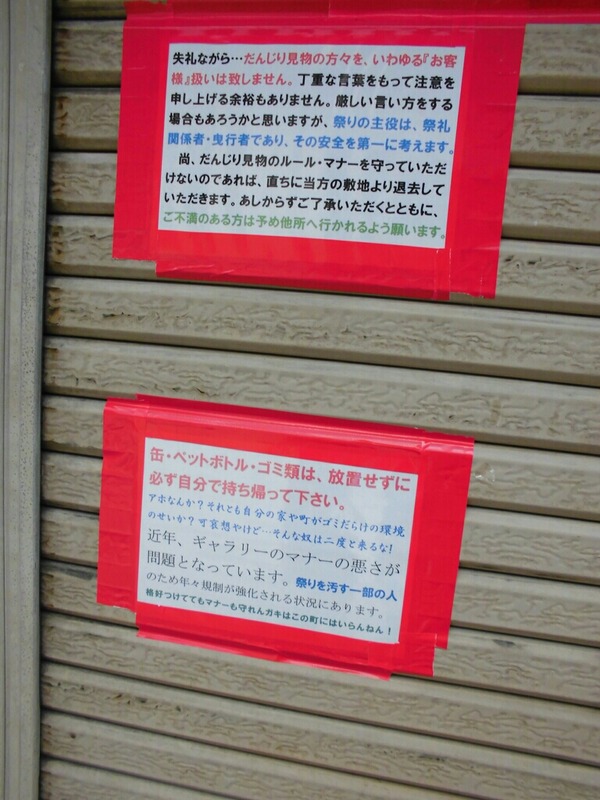 失礼ながら…だんじり見物の方々を、いわゆる『お客
様』扱いは致しません。丁重な言葉をもって注意を
申し上げる余裕もありません。厳しい言い方をする
場合もあろうかと思いますが、祭りの主役は、祭礼
関係者・曳行者であり、その安全を第一に考えます。
尚、だんじり見物のルール・マナーを守っていただ
けないのであれば、直ちに当方の敷地より退去して
いただきます。あしからずご了承いただくとともに、
ご不満のある方は予め他所へ行かれるよう願います。
缶・ペットボトル・ゴミ類は、放置せずに
必ず自分で持ち帰って下さい。
アホなんか？それとも自分の家や町がゴミだらけの環境
のせいか？可哀想やけど…そんな奴は二度と来るな!
近年、ギャラリーのマナーの悪さが
問題となっています。祭りを汚す一部の人
のため年々規制が強化される状況にあります。
格好つけててもマナーも守れんガキはこの町にはいらんねん！